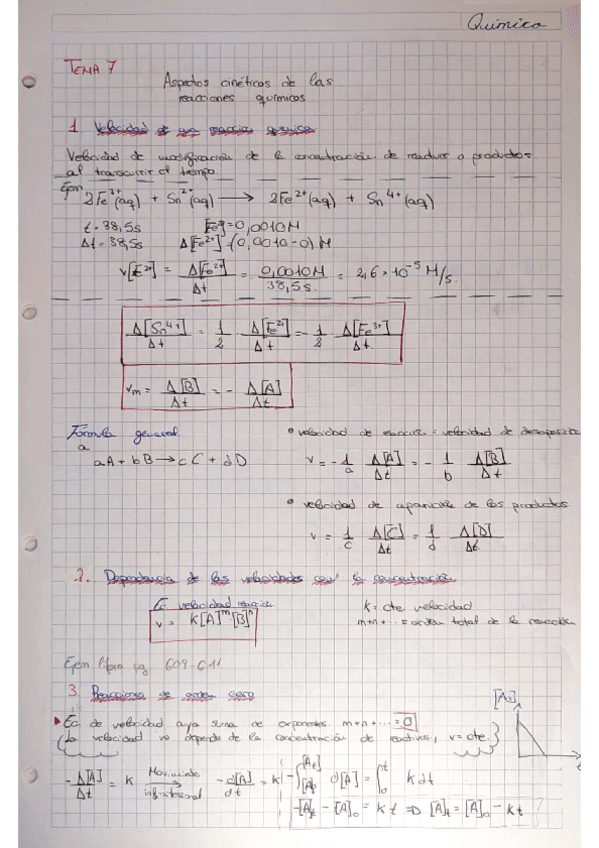 Química
TEMA 7
Aspectos cinéticos de las
reacciones químicas
1. Velocidad de una reacción química
Velocidad de modificación de la concentración de reactivo o productos
al transcurrir el tiempo
Ejem
2Fe³⁺(aq) + Sn²⁺(aq) → 2Fe²⁺(aq) + Sn⁴⁺(aq)
t = 38,5s [Fe²⁺] = 0,0010M
Δt = 38,5s Δ[Fe²⁺] = (0,0010-0) M
= Δ[Fe²⁺]/Δt = 0,0010M/38,5s. = 2,6 × 10⁻⁵ M/s.
Δ[Sn⁴⁺]/Δt = 1/2 · Δ[Fe²⁺]/Δt = - 1/2 · Δ[Fe³⁺]/Δt.
vm = Δ[B]/Δt = - Δ[A]/Δt
Fórmula general
a
aA + bB → cC + dD
• velocidad de reacción = velocidad de desaparición
v = - 1/a Δ[A]/Δt = - 1/b Δ[B]/Δt
• velocidad de aparición de los productos
v = 1/c Δ[C]/Δt = 1/d Δ[D]/Δt.
2. Dependencia de las velocidades con la concentración
Ec velocidad reacción
v = k[A]ᵐ·[B]ⁿ
k = cte velocidad
m+n+... = orden total de la reacción
Ejem libro pg 609-611
3. Reacciones de orden cero
Ec de velocidad cuya suma de exponentes m+n+... = 0
(La velocidad no depende de la concentración de reactivos, v = cte.)
t
-Δ[A]/Δt = k Movimiento infinitesimal → -d[A]/dt = k
d[A] = ∫₀ᵗ k dt
-[A]t - [A]₀ = kt ⇒ [A]t = [A]₀ - kt